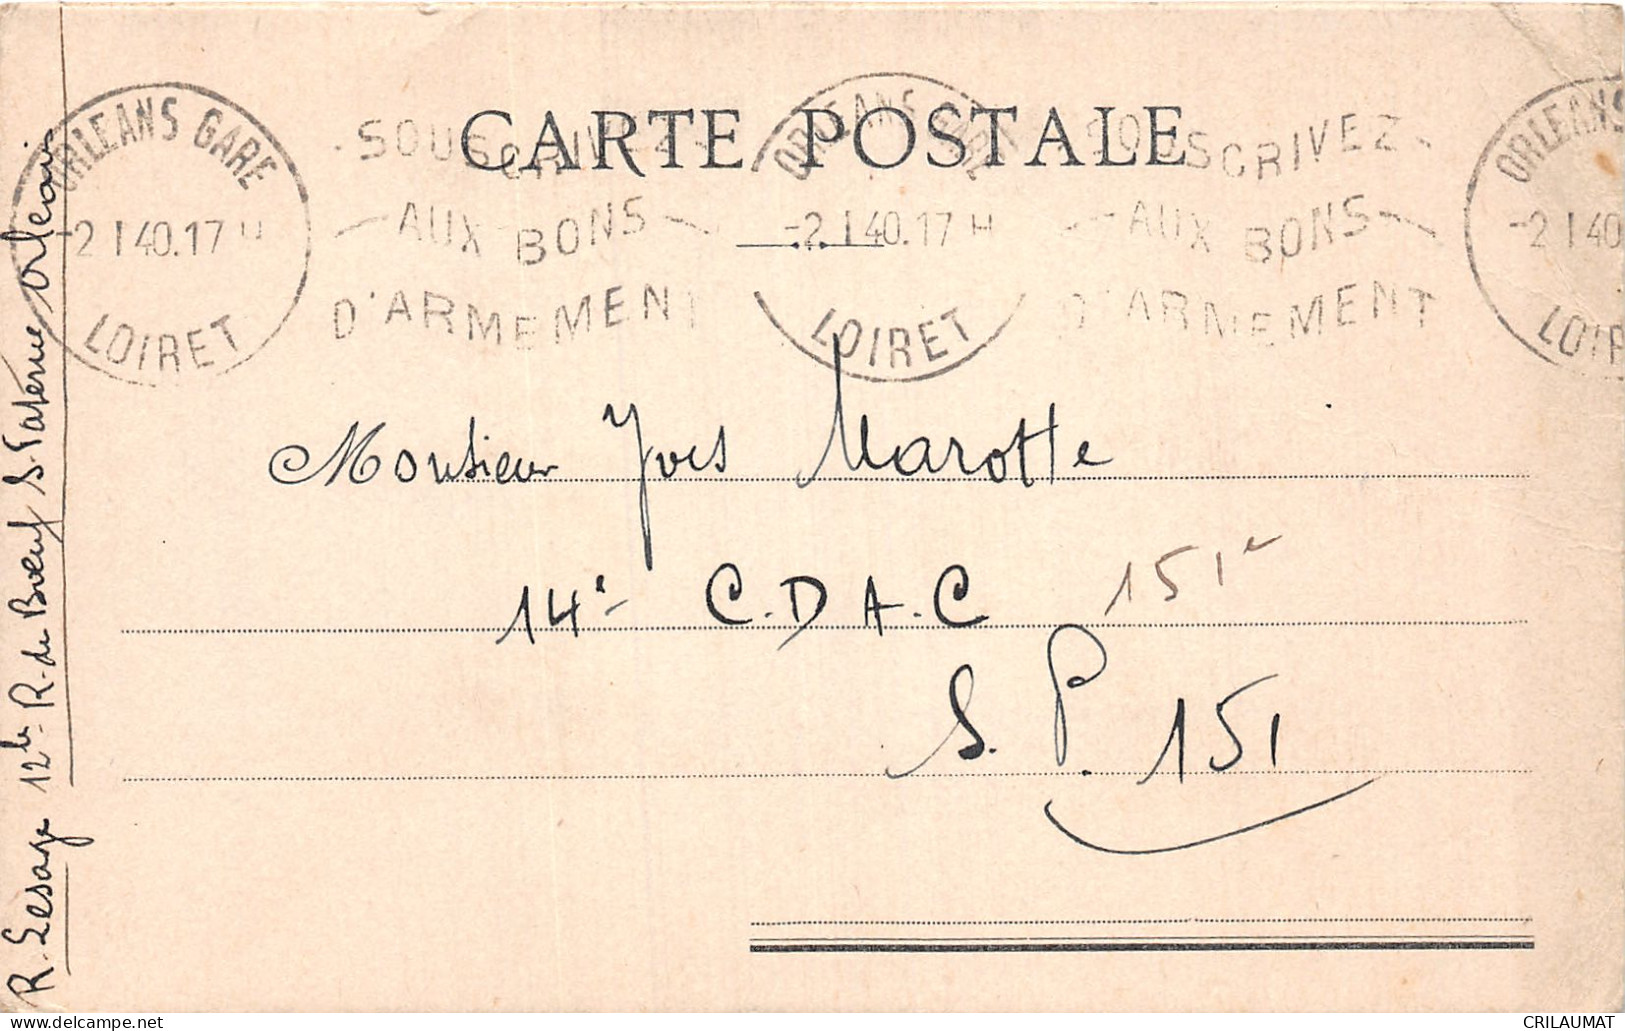 CARTE POSTALE
ORLEANS GARE
-2 I 40.17 H
LOIRET
SOUSCRIVEZ
AUX BONS
D'ARMEMENT
ORLEANS GARE
-2 I 40.17 H
LOIRET
SOUSCRIVEZ
AUX BONS
D'ARMEMENT
ORLEANS
-2 I 40
LOIR
Monsieur Yves Marotte
14e C.D.A.C 151e
S.P. 151
R. Lesage 12bis R. du Boeuf St. Paterne Orléans
delcampe.net
CRILAUMAT